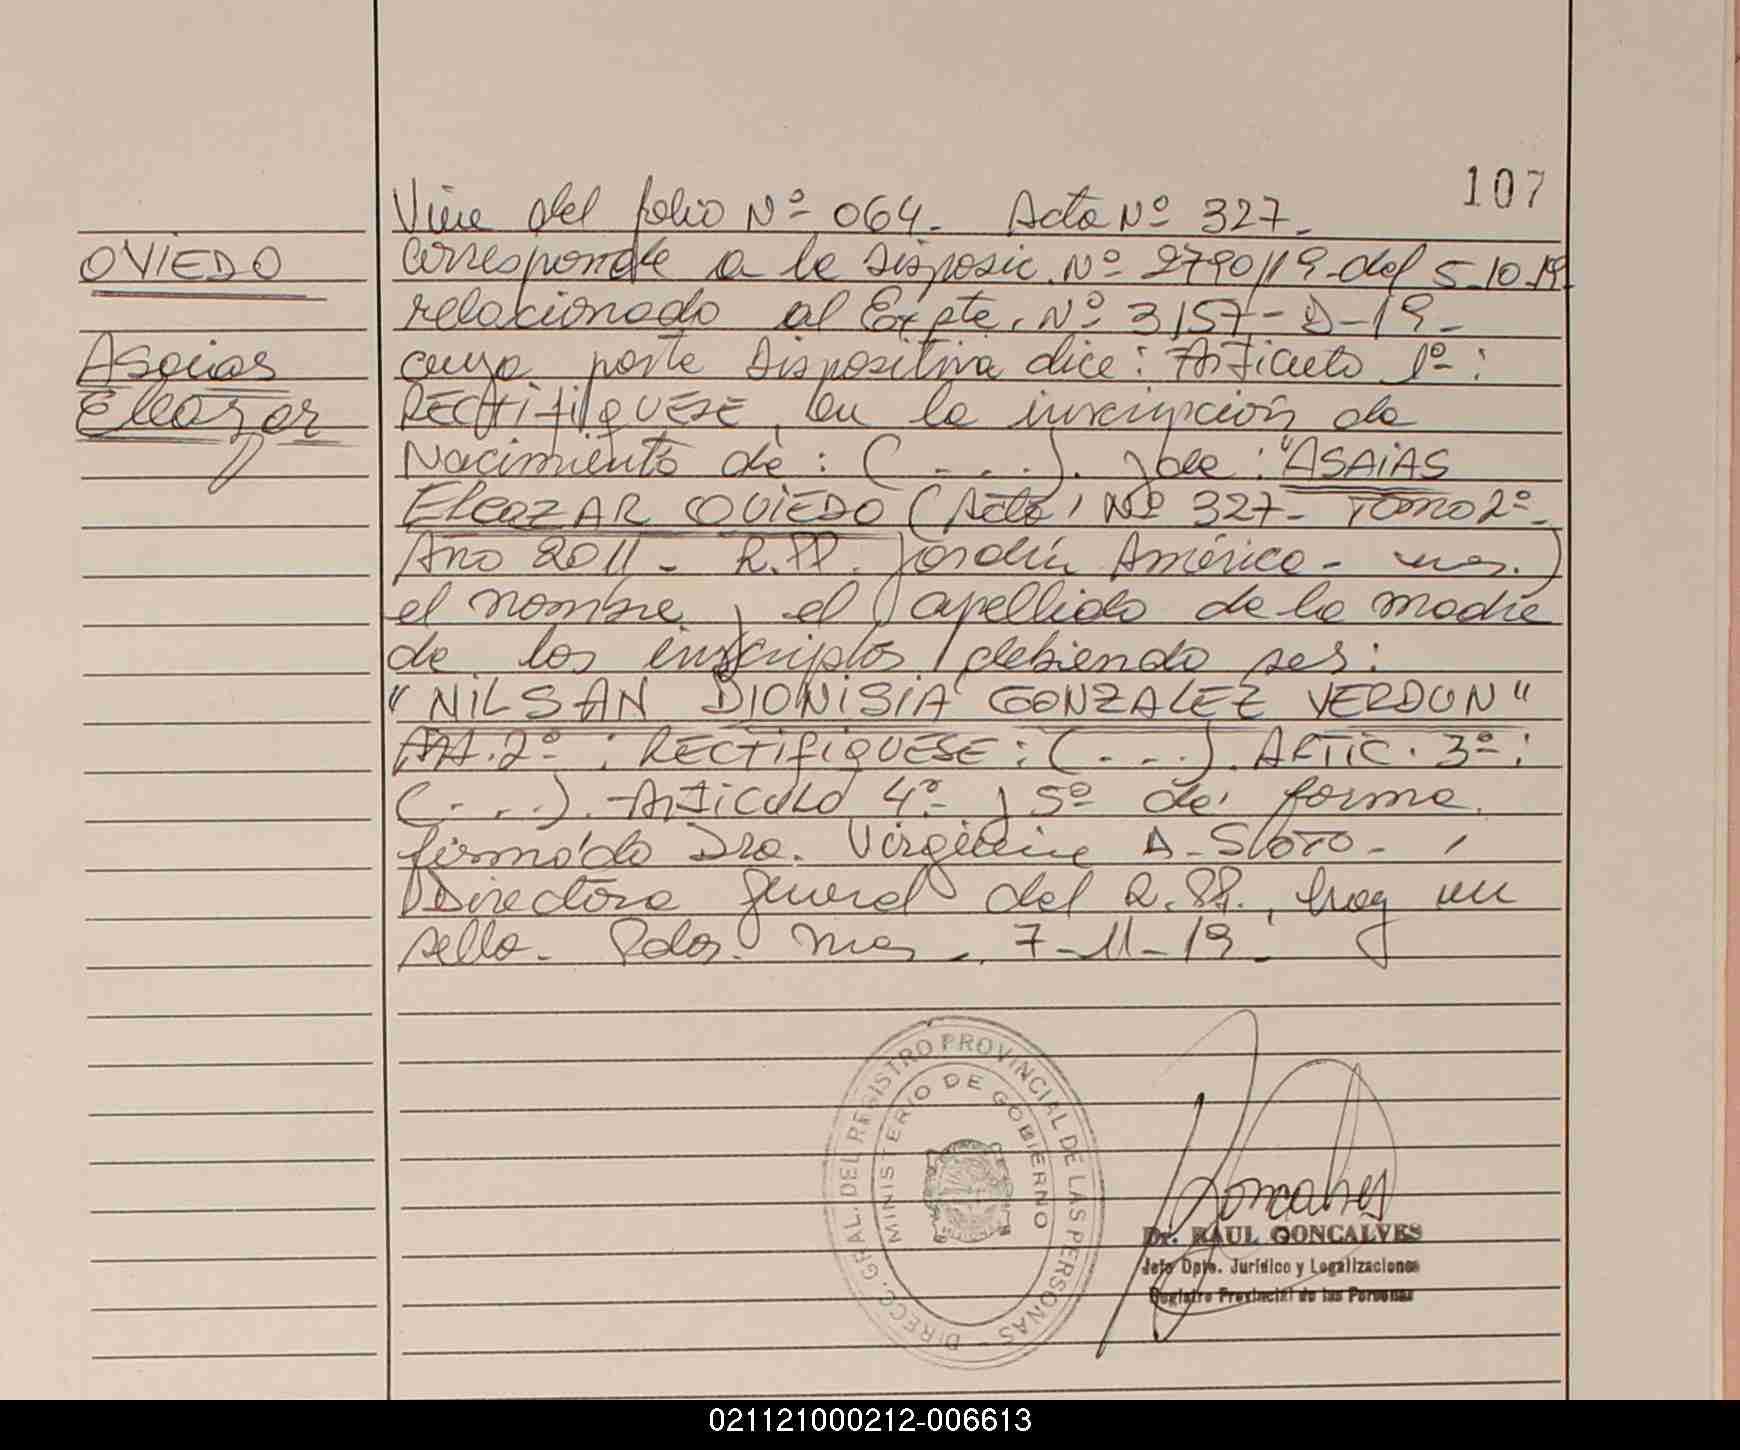 107
Viene del folio Nº 064. Acta Nº 327.
OVIEDO
corresponde a la Disposic. Nº 2790/19 del 5-10-19
relacionado al Expte. Nº 3157-D-19-
Asaias
cuya parte Dispositiva dice: Artículo 1º:
Eleazar
RECTIFIQUESE, en la inscripción de
Nacimiento de: (...). y de: "ASAIAS
ELEAZAR OVIEDO (Acta Nº 327- Tomo 2º-
Año 2011- R.PP. Jardín América- Mnes.)
el nombre y el apellido de la madre
de los inscriptos, debiendo ser:
"NILSAN DIONISIA GONZALEZ VERDUN"
Art. 2º: RECTIFIQUESE: (...). ARTIC. 3º:
(...). Artículo 4º y 5º de forma.
firmado Dra. D.
Directora general del R.PP., hay un
sello. Pdas. Mnes. 7-11-19.
DIRECC. GRAL. DEL REGISTRO PROVINCIAL DE LAS PERSONAS
MINISTERIO DE GOBIERNO
Goncalves
Dr. RAUL GONCALVES
Jefe Dpto. Jurídico y Legalizaciones
Registro Provincial de las Personas
021121000212-006613